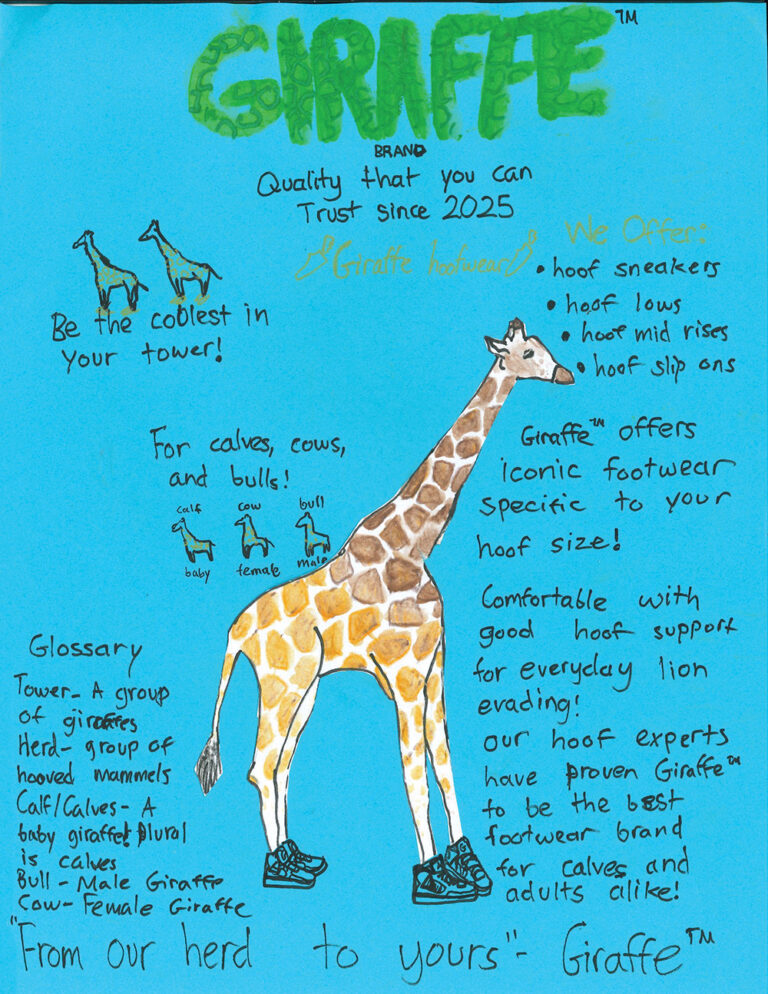 GIRAFFE™
BRAND
Quality that you can
Trust since 2025
Giraffe hoofwear
We Offer:
• hoof sneakers
• hoof lows
• hoof mid rises
• hoof slip ons
Be the coolest in
your tower!
For calves, cows,
and bulls!
calf cow bull
baby female male
Giraffe™ offers
iconic footwear
specific to your
hoof size!
Comfortable with
good hoof support
for everyday lion
evading!
our hoof experts
have proven Giraffe™
to be the best
footwear brand
for calves and
adults alike!
Glossary
Tower- A group
of giraffes
Herd- group of
hooved mammels
Calf/Calves- A
baby giraffe! Plural
is calves
Bull - Male Giraffe
Cow- Female Giraffe
"From our herd to yours"- Giraffe™